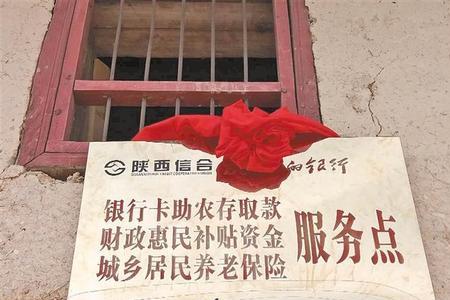 陕西信合 的银行
银行卡助农存取款
财政惠民补贴资金
城乡居民养老保险
服务点